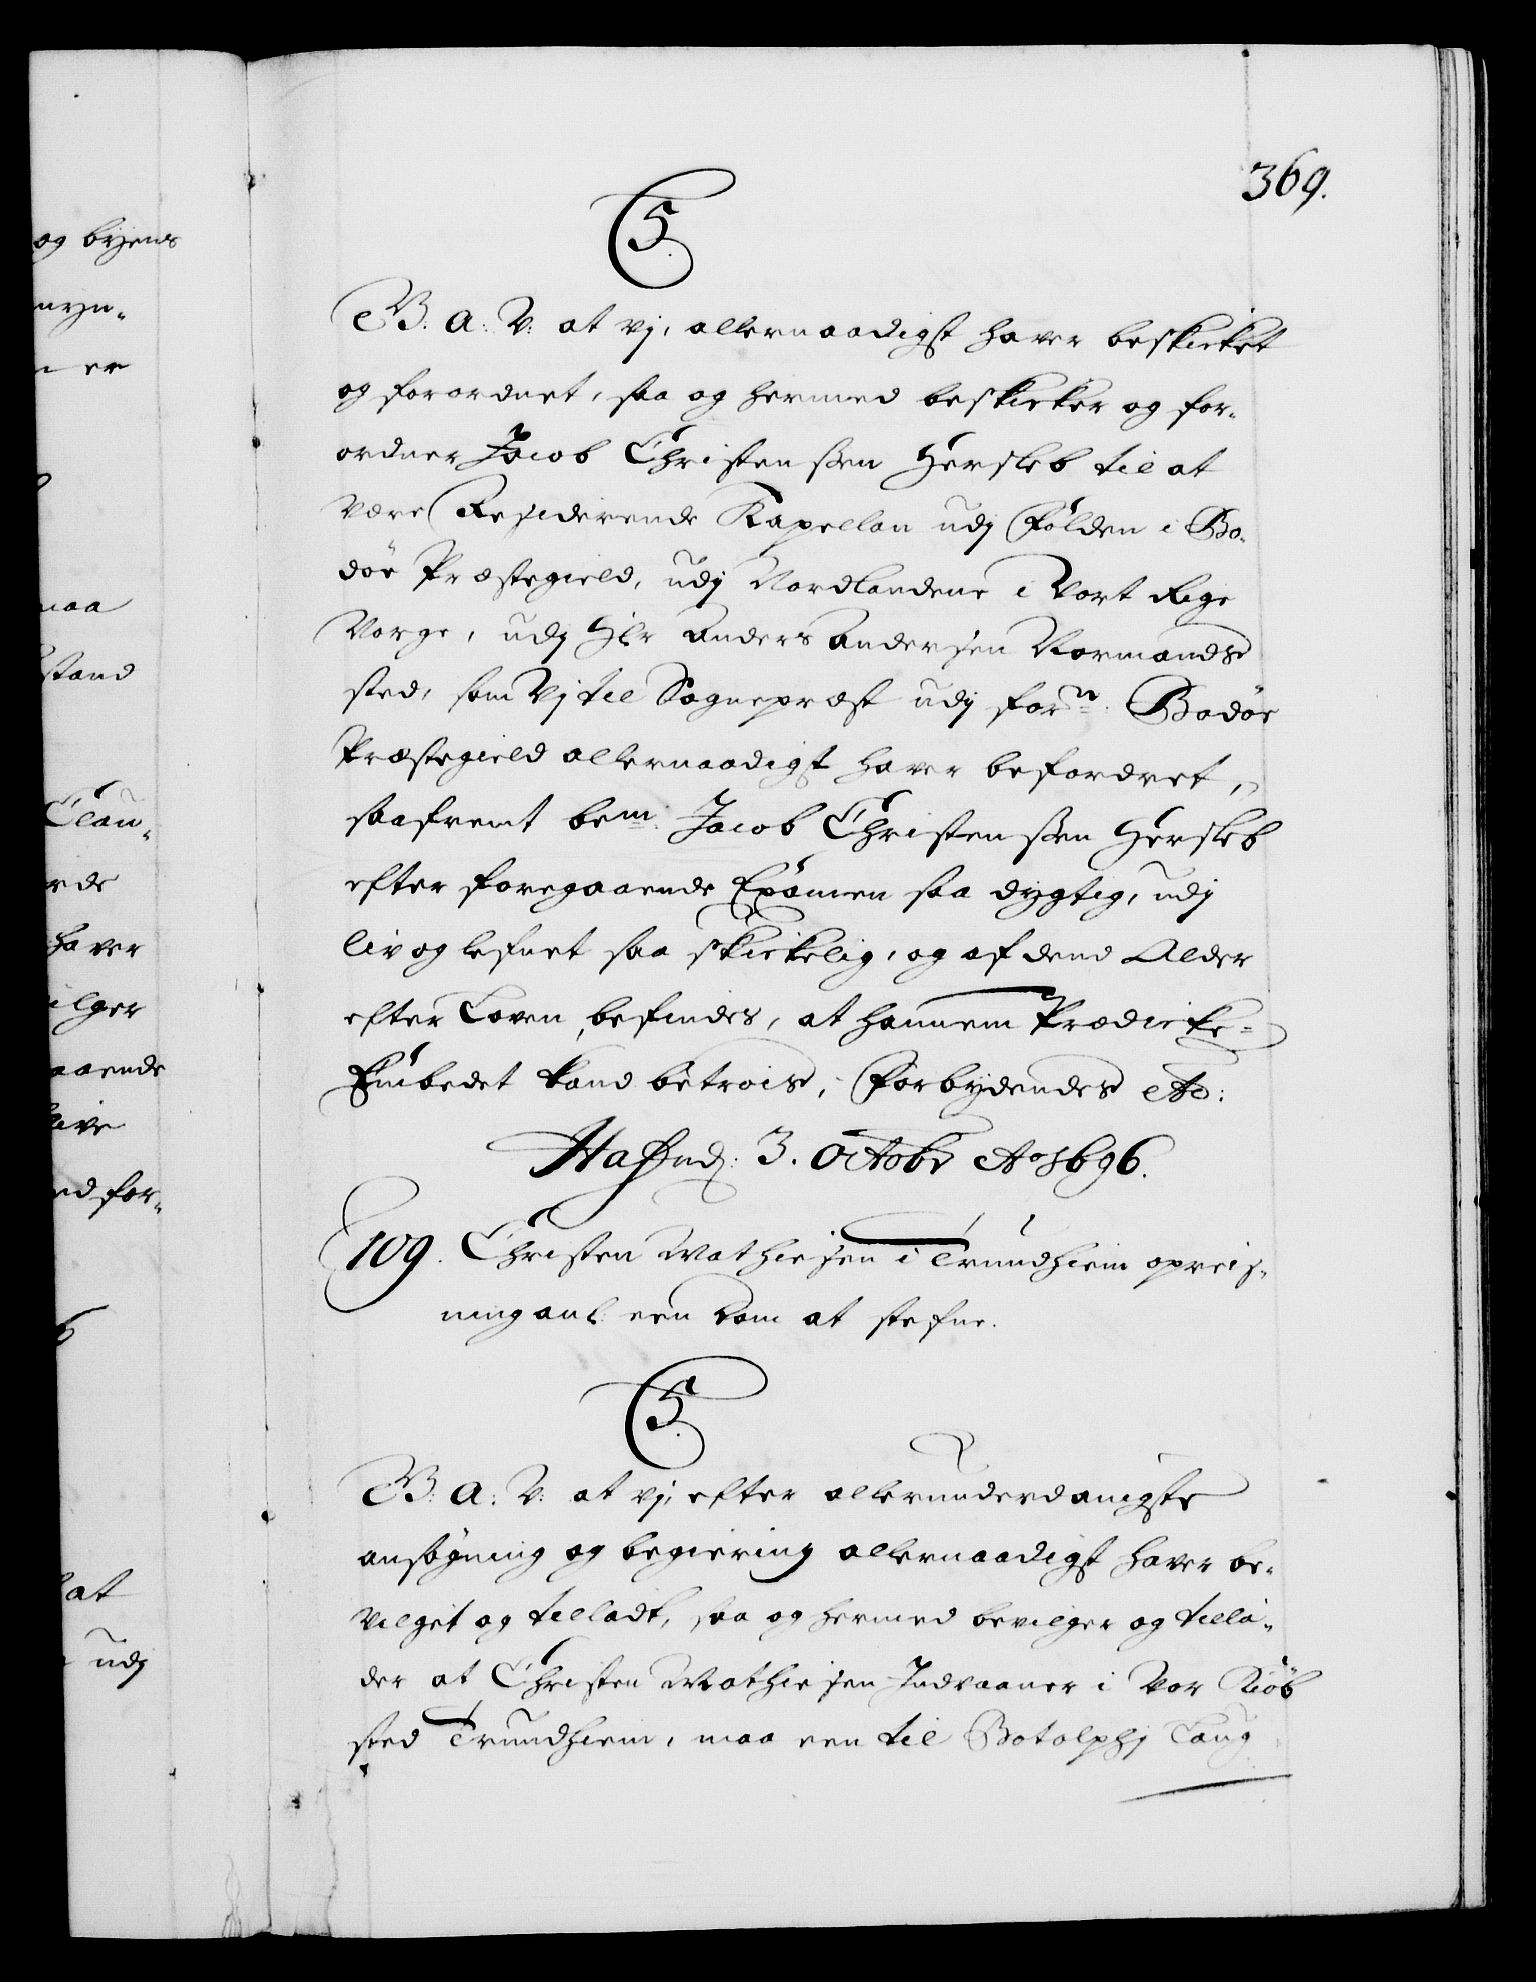 369.
C 5.
G. A. V. at vj, allernaadigst haver beskicket
og forordnet, saa og hermed beskicker og for-
ordner Jacob Christenssen Hersleb til at
være Residerende Kapellan udj Folden i Bo-
döe Præstegield, udj Nordlandene i Vort Rige
Norge, udj Hr Anders Andersen Normands
sted, som Vj til Sognepræst udj forn: Bodöe
Præstegield allernaadigst haver befordret,
saafremt bem: Jacob Christenssen Hersleb
efter foregaaende Examen saa dygtig, udj
liv og lefnet saa skickelig, og af dend Alder
efter Loven, befindes, at hannem Prædicke-
Embedet kand betroes, Forbydendes etc:
Hafnd: 3. Octobr Ao 1696.
109. Christen Mathiesen i Trundhiem opreis-
ning anl: een Dom at stefne.
C 5.
G. A. V. at vj, efter allerunderdanigste
ansögning og begiering allernaadigst haver be-
vilget og tilladt, saa og hermed bevilger og tilla-
der at Christen Mathiesen Indvaaner i Vor Kiöb
sted Trundhiem, maa een til Botolphj Laug
og byens
er
maa
stand
Clau-
haver
aaende
ed for-
at
udj